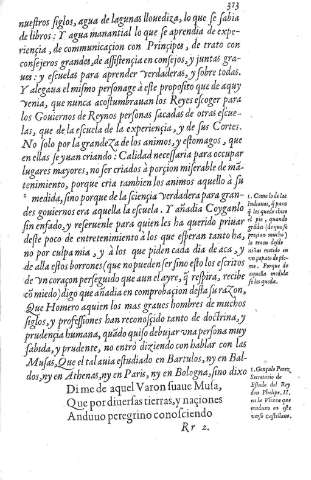 313
nuestros siglos, agua de lagunas llouediza, lo que se sabia
de libros: Y agua manantial lo que se aprendia de expe-
riençia, de communicacion con Prinçipes, de trato con
consejeros grandes, de assistençia en consejos, y juntas gra-
ues: y escuelas para aprender verdaderas, y sobre todas.
Y alegaua el mismo personage à este proposito que de aquy
venia, que nunca acostumbrauan los Reyes escoger para
los Gouiernos de Reynos personas sacadas de otras escue-
las, que de la escuela de la experiençia, y de sus Cortes.
No solo por la grandeza de los animos, y estomagos, que
en ellas se yuan criando: Calidad necessaria para occupar
lugares mayores, no ser criados à porçion miserable de mã-
tenimiento, porque cria tambien los animos aquello à su
1 medida, sino porque de la sciençia verdadera para gran-
des gouiernos era aquella la escuela. Y añadia Coyganlo
sin enfado, y reseruenle para quien les ha querido priuar
deste poco de entretenimiento à los que esperan tanto ha,
no por culpa mia, y à los que piden cada dia de aca, y
de alla estos borrones (que no pueden ser sino esto los escritos
de vn coraçon perseguido que aun el ayre, q̃ respira, recibe
cõ miedo) digo que añadia en comprobacion desta su razon,
Que Homero aquien los mas graues hombres de muchos
siglos, y professiones han reconosçido tanto de doctrina, y
prudençia humana, quãdo quiso debujar vna persona muy
sabida, y prudente, no entrò diziendo con hablar con las
Musas, Que el tal auia estudiado en Bartulos, ny en Bal-
dos, ny en Athenas, ny en Paris, ny en Bologna, sino dixo
Di me de aquel Varon suaue Musa,
Que por diuersas tierras, y naçiones
Anduuo peregrino conosciendo
Rr 2.
1. Como lo de las
Indianas, q̃ para
q̃ les quede chico
el pie, quando
grãdes (de que se
precian mucho)
lo traen desde
niñas metido en
vn çapato desse
no. Porque de
aquella medida
se les queda.
1. Gonçalo Perez
Secretario de
Estado del Rey
don Phelipe. II.
en la Vlixea que
traduxo en este
verso Castellano.